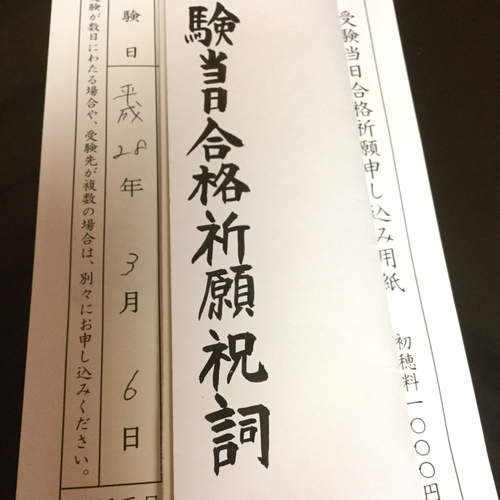 受験当日合格祈願申し込み用紙
初穂料一〇〇〇円
験当日合格祈願祝詞
験日 平成28年3月6日
験が数日にわたる場合や、受験先が複数の場合は、別々にお申し込みください。